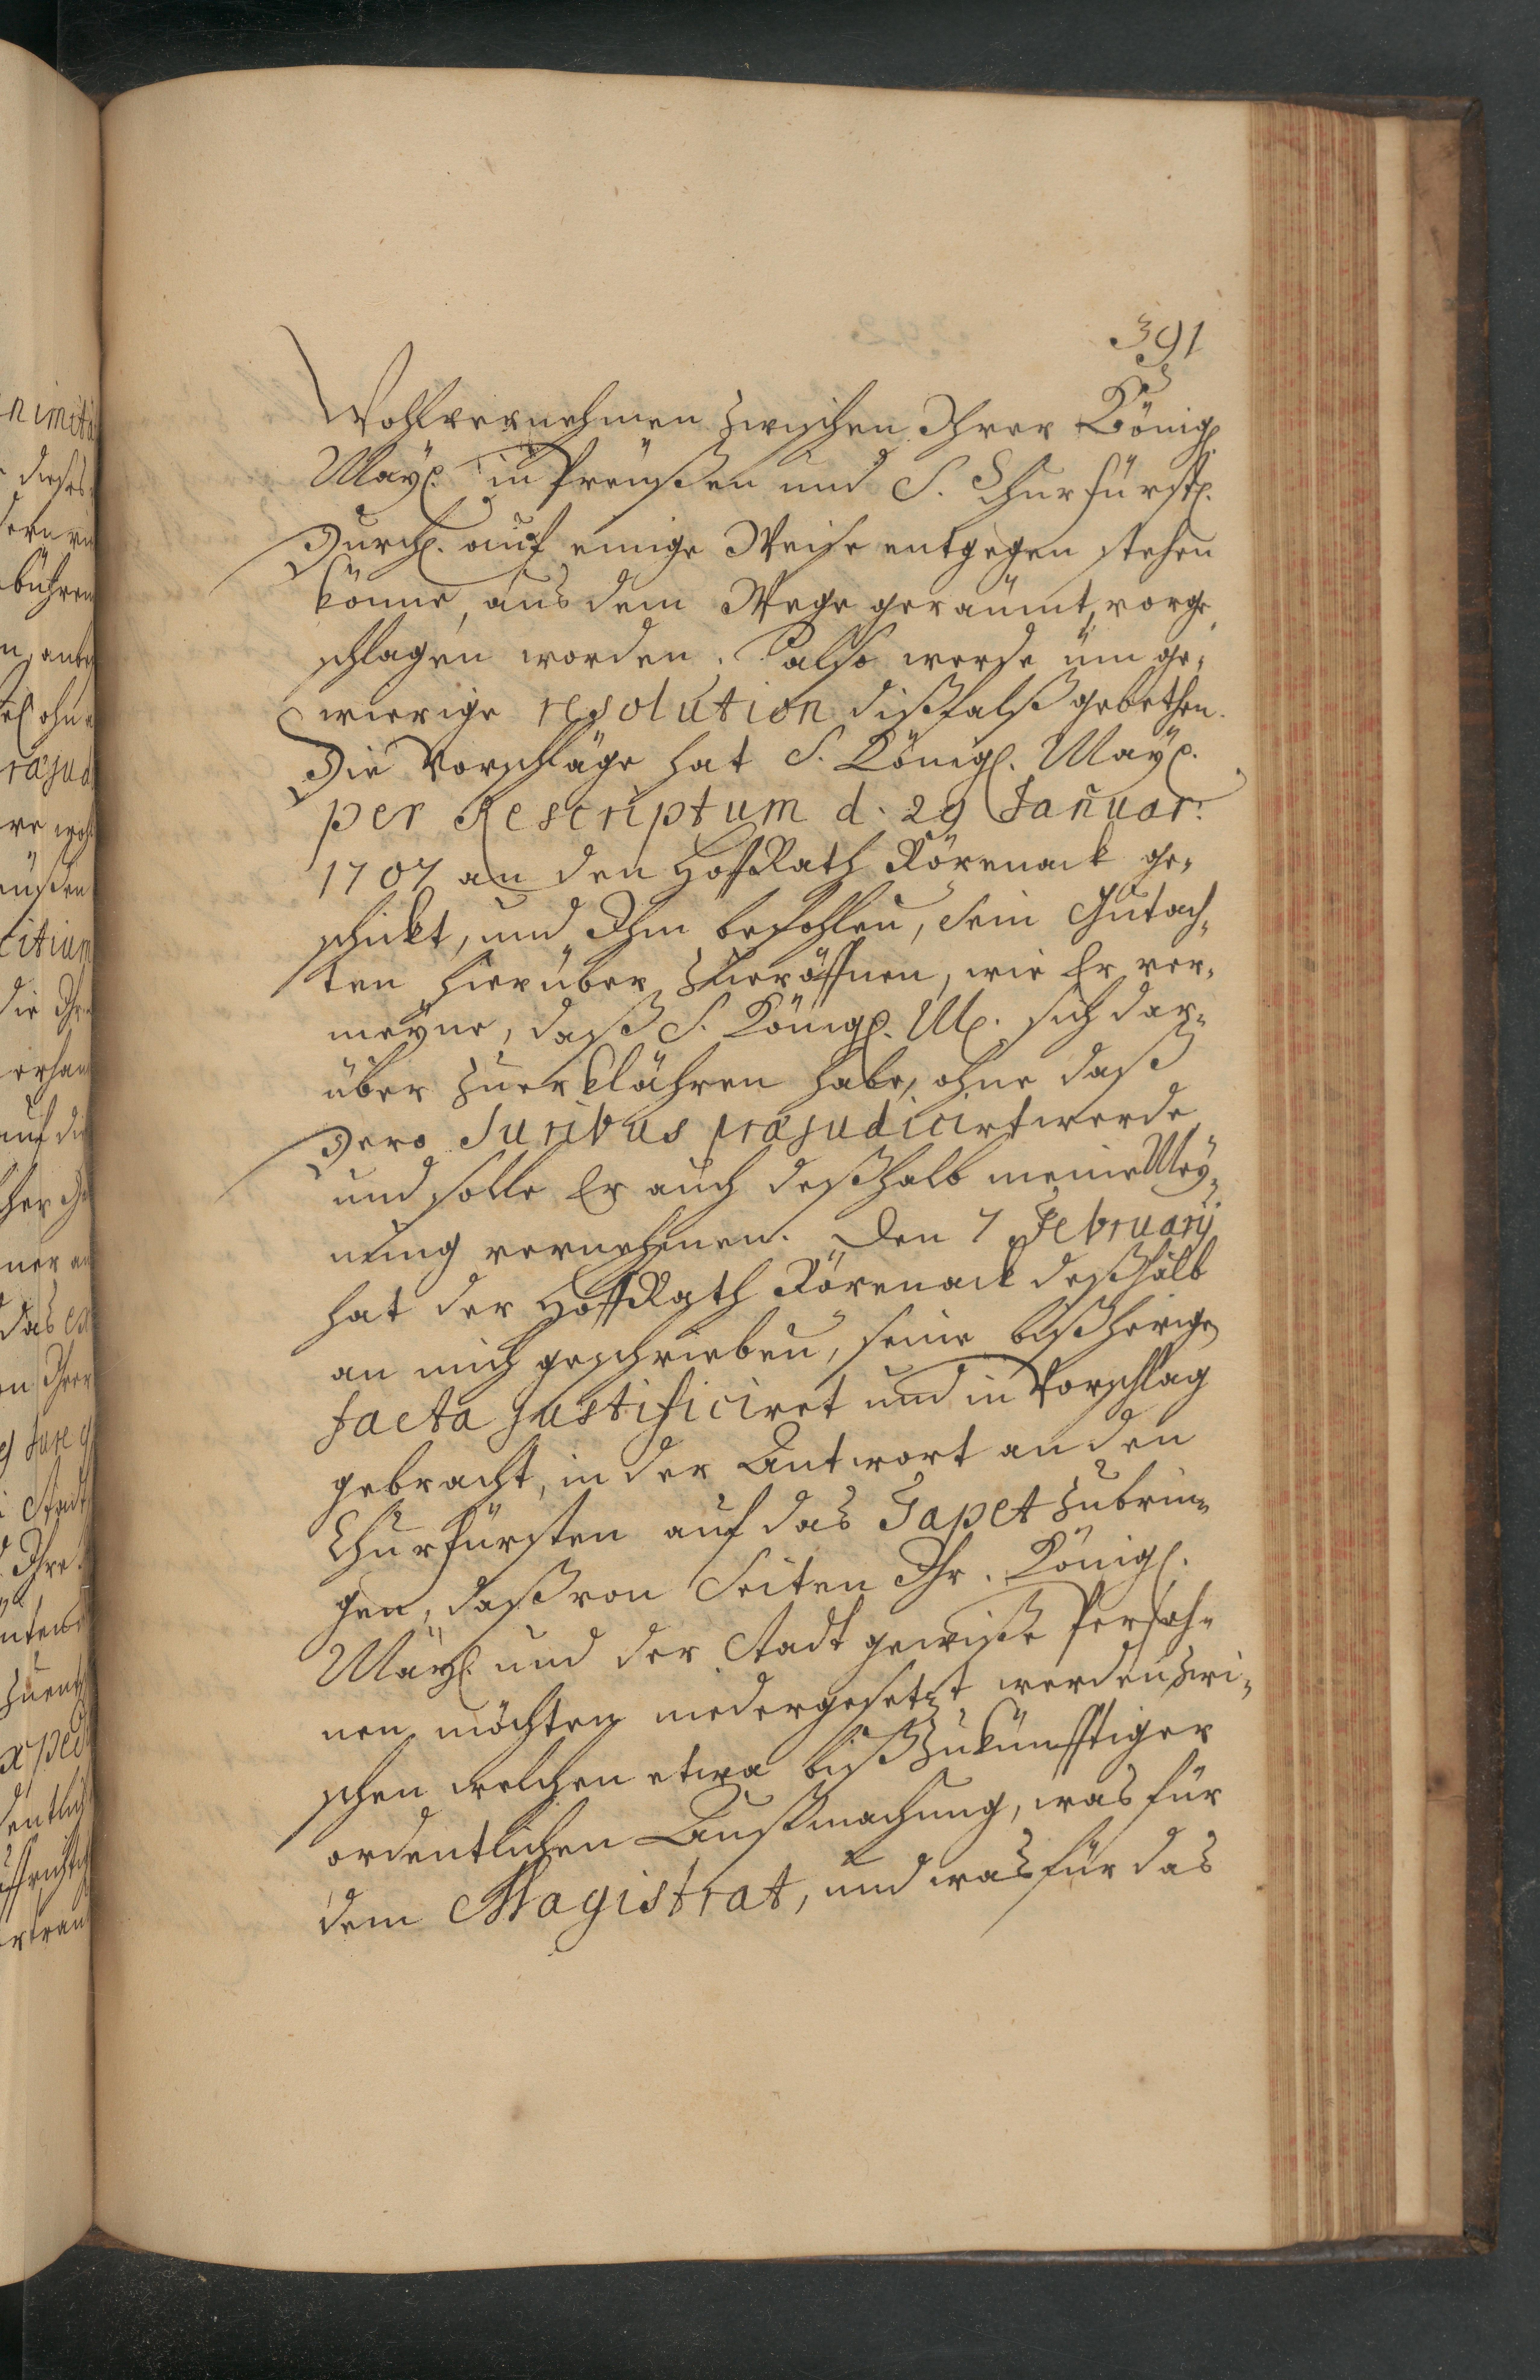 391
Wohlvernehmen zwischen Ihrer Königl.
Mayt. in Preußen und S. Churfürstl.
Durchl. auf einige Weise entgegen stehen
könne, aus dem Wege geräumt, vorge¬
schlagen worden. also werde üm ge¬
wierige resolution dißfalß gebethen.
Die Vorschläge hat S. Königl. Mayt.
per Rescriptum d. 29 Januar:
1707 an den HoffRath Rörenack ge¬
schickt, und Ihm befohlen, sein Gutach¬
ten hierüber zueröffnen, wie Er ver¬
meyne, daß S. Königl. M. sich dar¬
über zuerklähren habe, ohne daß
Dero Juribus præjudicirt werde,
und solle Er auch deßhalb meine Mey¬
nung vernehmen. Den 7 February
hat der HoffRath Rörenack deßhalb
an mich geschrieben, seine bißherige
facta justificiret und in Vorschlag
gebracht, in der Antwort an den
Churfürsten auf das Tapet zubrin¬
gen, daß von Seiten Ihr. Königl.
Mayt. und der Stadt gewiße Persoh¬
nen möchten niedergesetzt werden, zwi¬
schen welchen etwa biß zukünfftiger
ordentlichen Außmachung, was für
dem Magistrat, und was für das